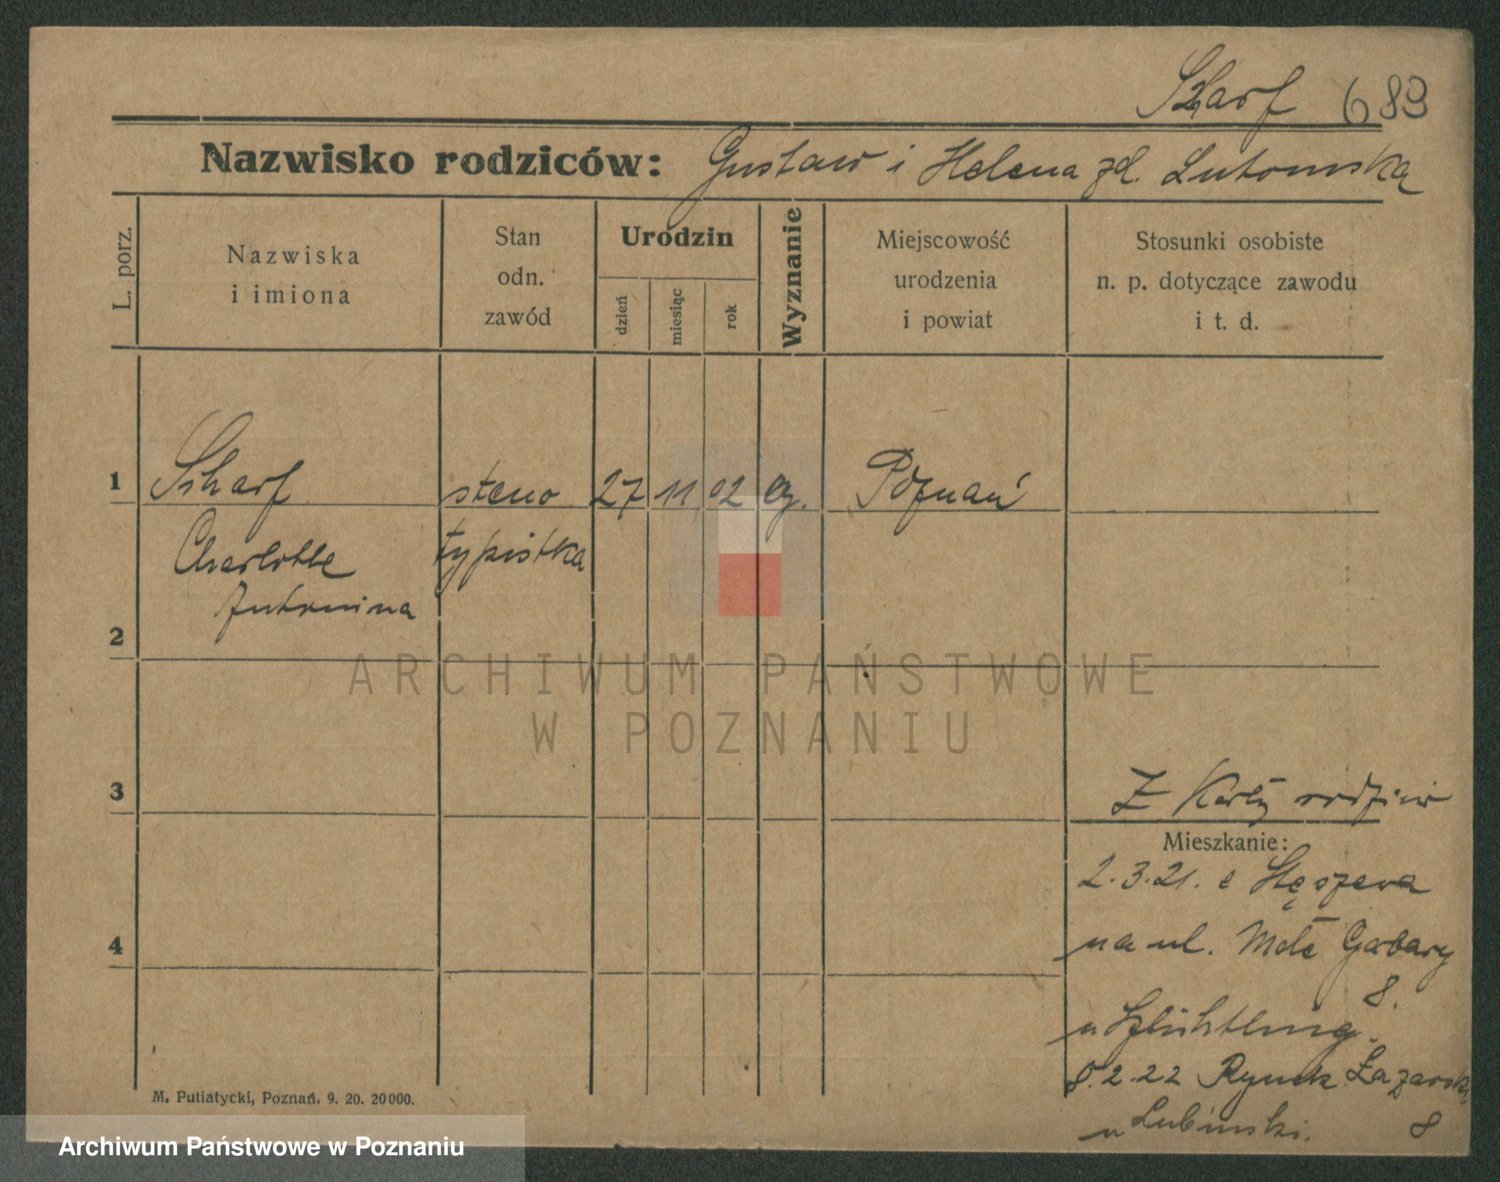 Scharf 683
Nazwisko rodziców: Gustaw i Helena zd. Lutomska
L. porz.
Nazwiska
i imiona
Stan
odn.
zawód
Urodzin
dzień
miesiąc
rok
Wyznanie
Miejscowość
urodzenia
i powiat
Stosunki osobiste
n. p. dotyczące zawodu
i t. d.
1 Scharf steno 27 11 02 Poznań
Charlotte typistka
Antonina
2
3
Z Karty rodziców
Mieszkanie:
2.3.21. z Stęszewa
4
na ul. Małe Garbary
8.
u
8.2.22 Rynek Łazarski
u Lubinski. 8
M. Putiatycki, Poznań. 9. 20. 20000.
ARCHIWUM PAŃSTWOWE
W POZNANIU
Archiwum Państwowe w Poznaniu